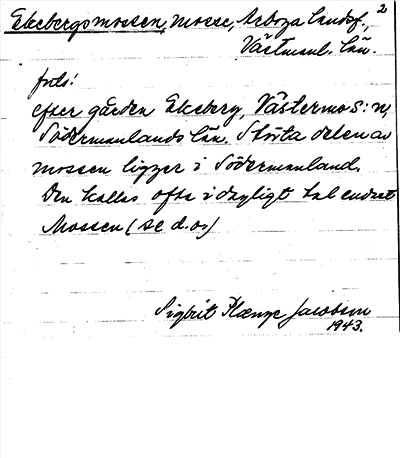 2
Ekebergsmossen, mosse, Arboga landsf.,
Västmanl. län.
forts:
efter gården Ekeberg, Västermo s:n,
Södermanlands län. Största delen av
mossen ligger i Södermanland.
Den kallas ofta i dagligt tal endast
Mossen (se d.o.)
Sigbrit Plænge Jacobson
1943.